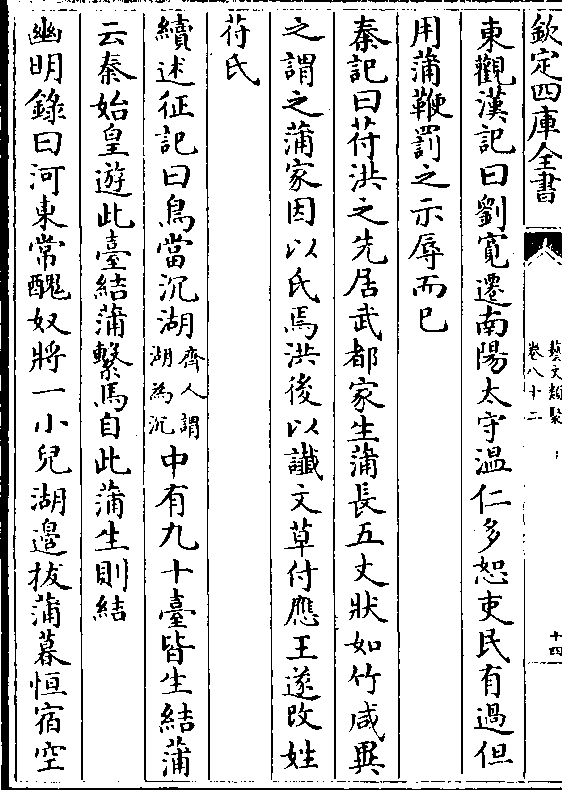 欽定四庫全書
藝文類聚
卷八十二
十四
東觀漢記曰劉寬遷南陽太守温仁多恕吏民有過但
用蒲鞭罰之示辱而已
秦記曰苻洪之先居武都家生蒲長五丈狀如竹咸異
之謂之蒲家因以氏焉洪後以讖文草付應王遂改姓
苻氏
續述征記曰烏當沉湖齊人謂湖為沉中有九十臺皆生結蒲
云秦始皇遊此臺結蒲繫馬自此蒲生則結
幽明錄曰河東常醜奴將一小兒湖邊拔蒲暮恒宿空